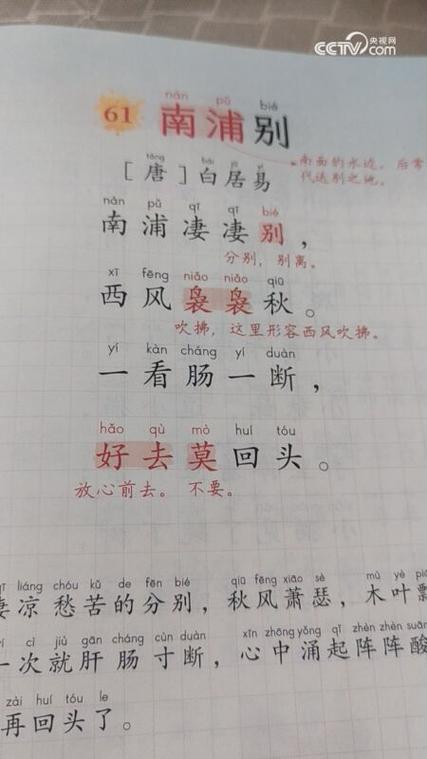 CCTV 央视网 com
nán pǔ bié
61 南浦别
南面的水边。后常
代送别之地。
táng bái jū yì
[唐] 白居易
nán pǔ qī qī bié
南浦凄凄别，
分别，别离。
xī fēng niǎo niǎo qiū
西风袅袅秋。
吹拂，这里形容西风吹拂。
yí kàn cháng yí duàn
一看肠一断，
hǎo qù mò huí tóu
好去莫回头。
放心前去。 不要。
liáng chóu kǔ de fēn bié qiū fēng xiāo sè mù yè
凄凉愁苦的分别，秋风萧瑟，木叶飘
cì jiù gān cháng cùn duàn xīn zhōng yǒng qǐ zhèn zhèn suān
一次就肝肠寸断，心中涌起阵阵酸
zài huí tóu le
再回头了。